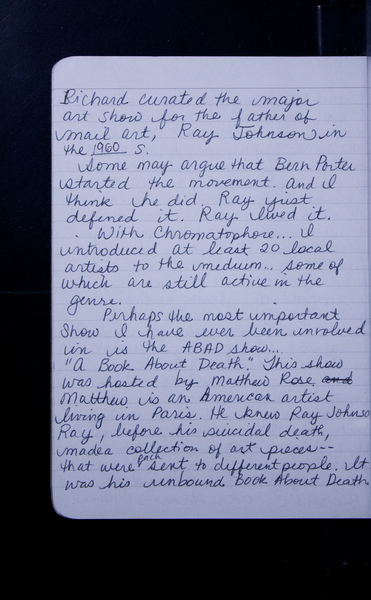 Richard curated the major
art show for the father of
mail art, Ray Johnson in
the 1960 s.
Some may argue that Bern Porter
started the movement. and I
think he did. Ray just
defined it. Ray lived it.
. With Chromatophore... I
introduced at least 20 local
artists to the medium... some of
which are still active in the
genre.
Perhaps the most important
Show I have ever been involved
in is the ABAD show...
"A Book About Death." This show
was hosted by Matthew Rose. and
Matthew is an American artist
living in Paris. He knew Ray Johnso
Ray, before his suicidal death,
made a collection of art pieces--
that were each sent to different people. It
was his unbound Book About Death.